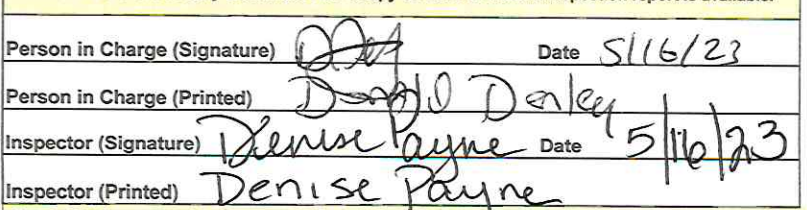 Person in Charge (Signature) Date 5/16/23
Person in Charge (Printed) Donald Denley
Inspector (Signature) Denise Payne Date 5/16/23
Inspector (Printed) Denise Payne